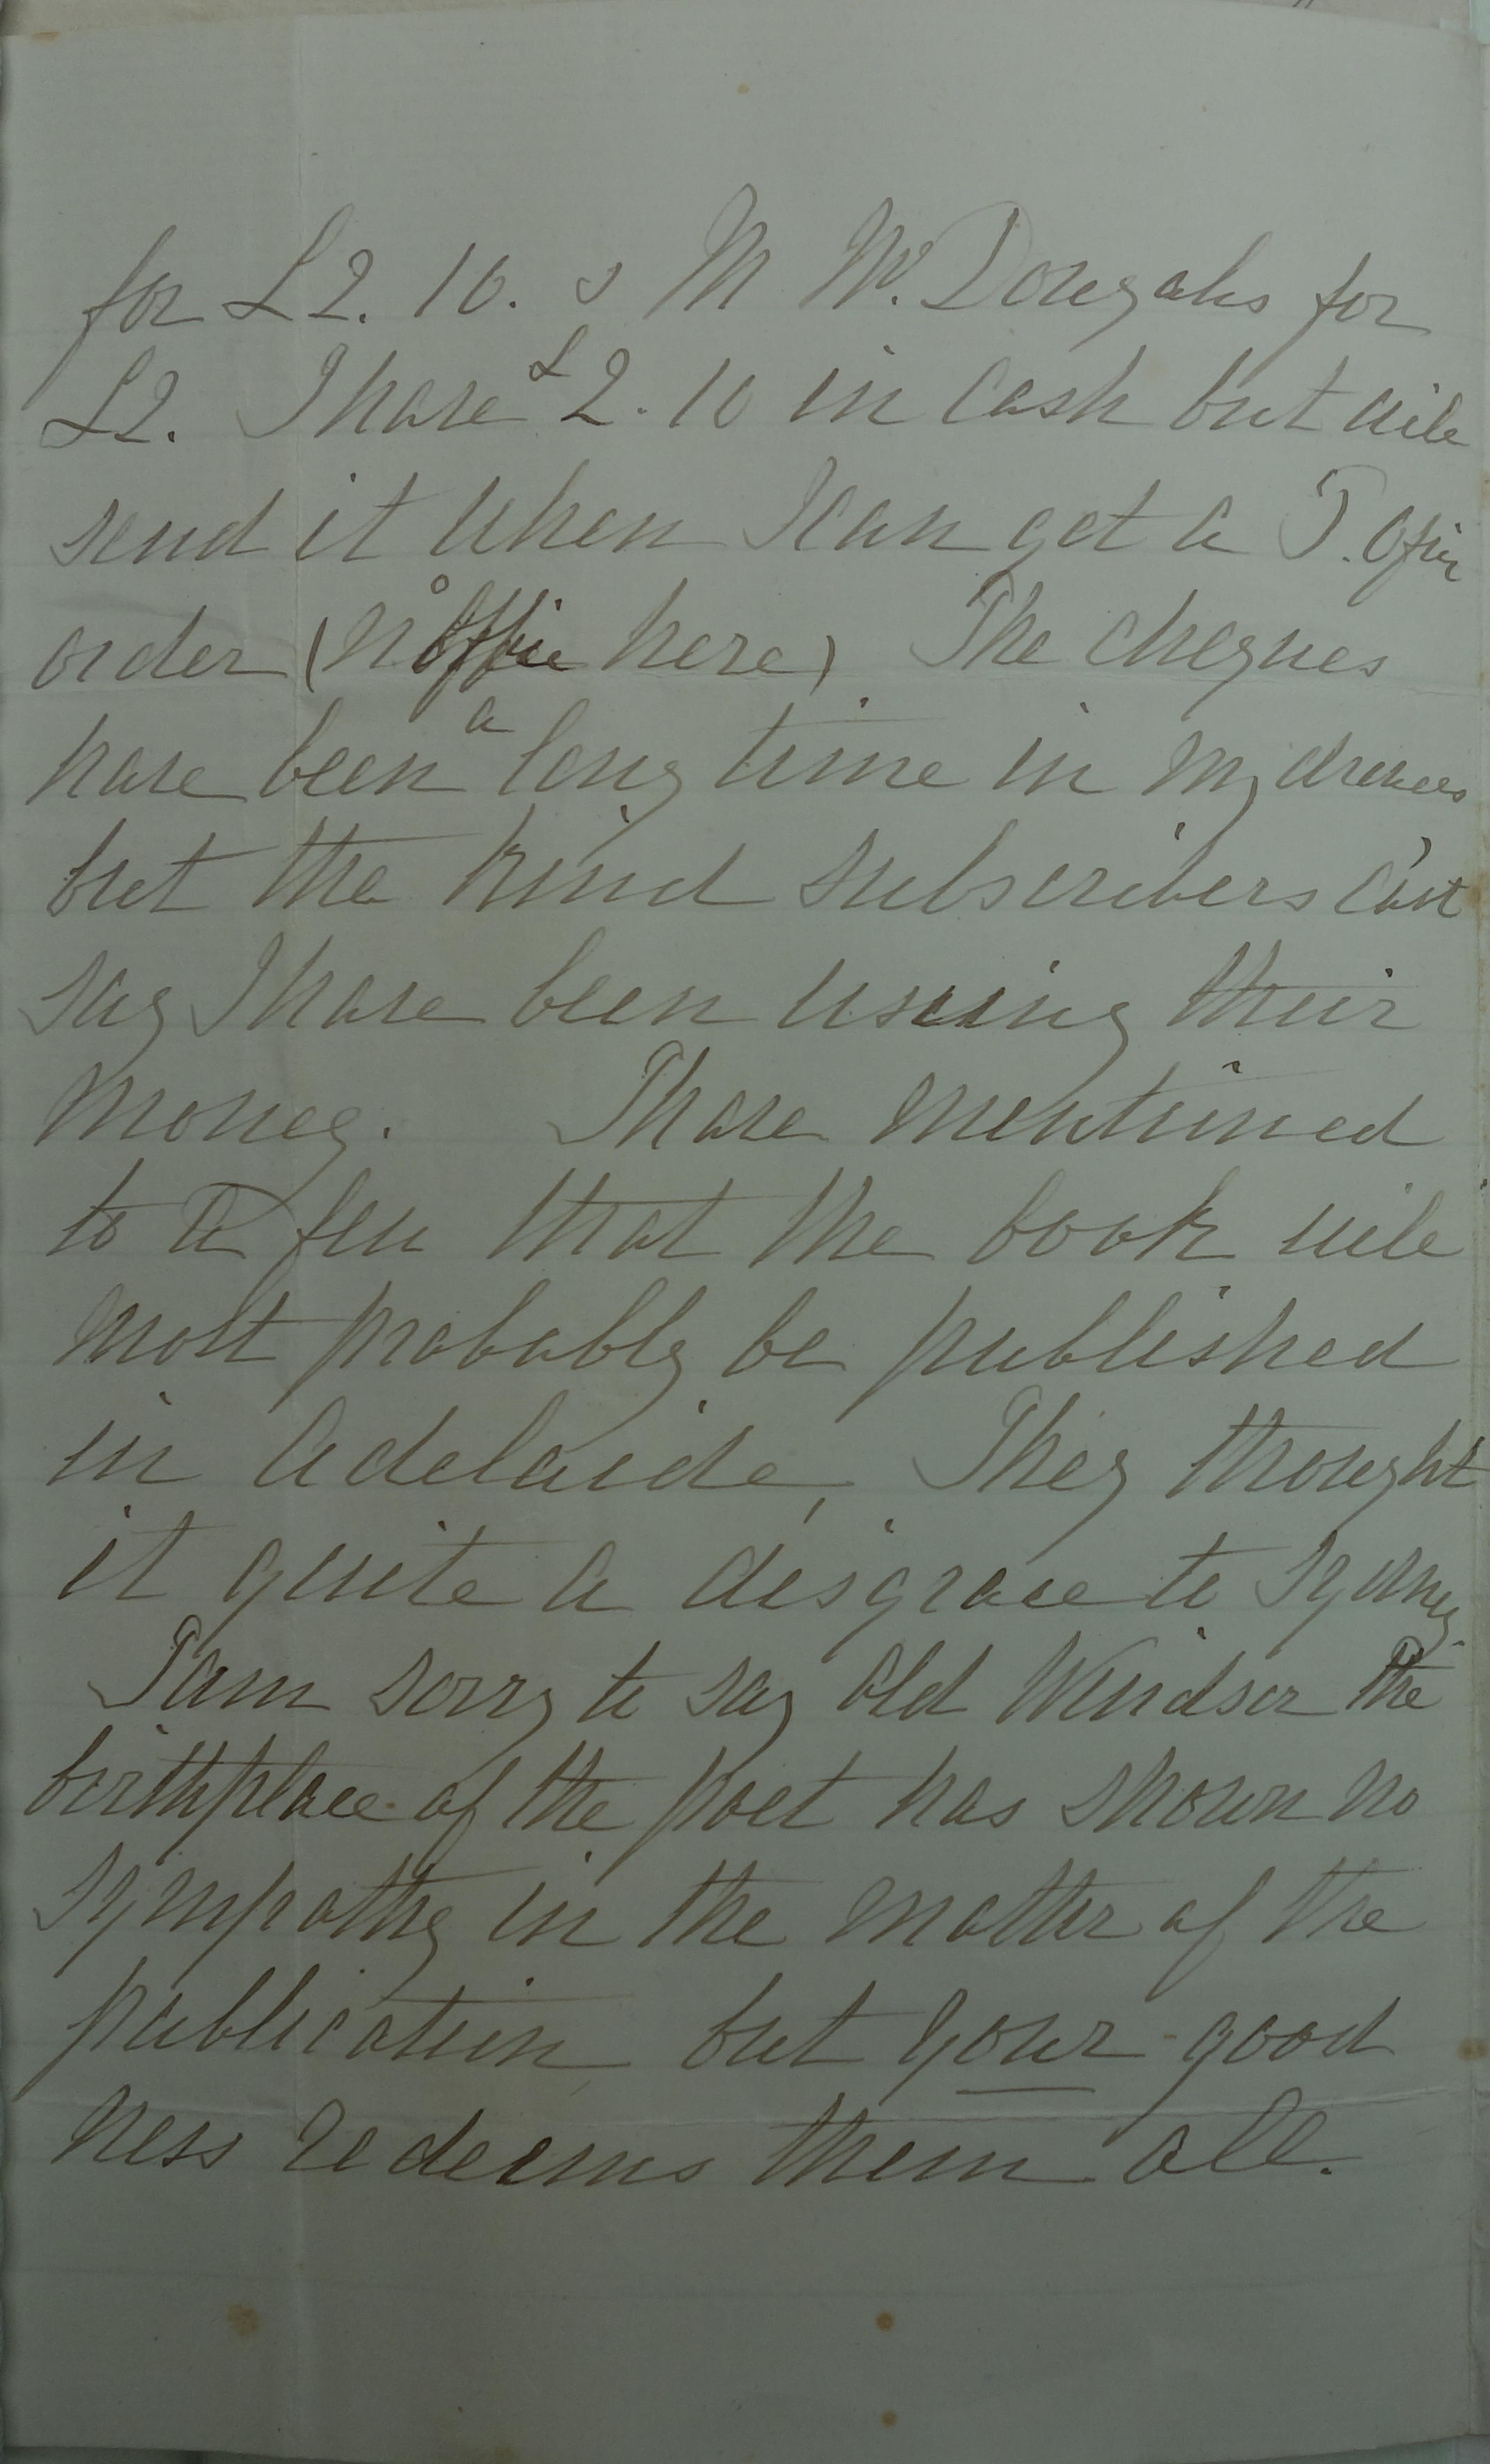 for £2. 10. & M McDougals for
£2. I have £2. 10 in cash but will
send it when I can get a P. Office
order (no office here) The cheques
have been a long time in my drawers
but the kind subscribers can't
say I have been using their
money. I have mentioned
to a few that the book will
most probably be published
in Adelaide, They thought
it quite a disgrace to Sydney.
I am sorry to say Old Windsor the
birthplace of the poet has shown no
sympathy in the matter of the
publication but your good
ness redeems them all.